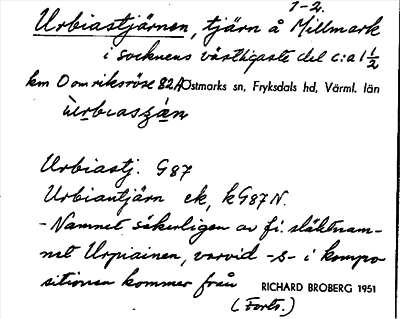 1-2.
Urbiastjärnen, tjärn å Millmark
i socknens västligaste del c:a 1½
km O om riksröse 82A Östmarks sn, Fryksdals hd, Värml. län
Urbiastj. G87
Urbiantjärn ek, kG87N.
- Namnet säkerligen av fi. släktnam-
net Urpiainen, varvid -s- i kompo
sitionen kommer från
RICHARD BROBERG 1951
(Forts.)